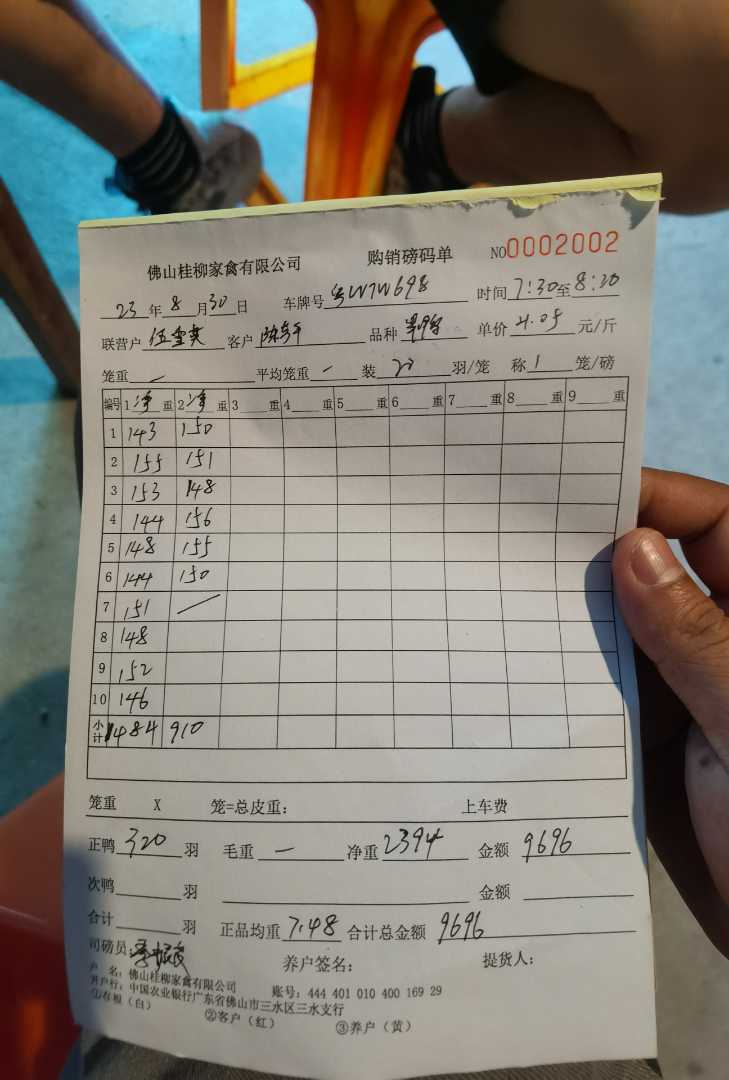 佛山桂柳家禽有限公司 购销磅码单 NO0002002
23年8月30日 车牌号粤W7W698 时间7:30至8:20
联营户 伍雪英 客户 品种 单价4.05元/斤
笼重 — 平均笼重 — 装20羽/笼 称1笼/磅
编号 1净重 2净重 3重 4重 5重 6重 7重 8重 9重
1 143 150
2 155 151
3 153 148
4 144 156
5 148 155
6 144 150
7 151 —
8 148
9 152
10 146
小计 1484 910
笼重 X 笼=总皮重： 上车费
正鸭320羽 毛重 — 净重2394 金额9696
次鸭 羽 金额
合计 羽 正品均重7.48 合计总金额9696
司磅员： 养户签名： 提货人：
户 名：佛山桂柳家禽有限公司 账号：444 401 010 400 169 29
开户行：中国农业银行广东省佛山市三水区三水支行
①存根（白） ②客户（红） ③养户（黄）